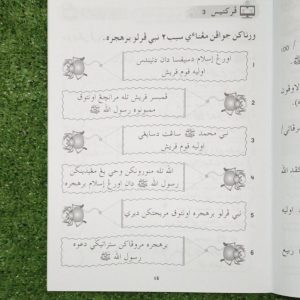 ڤرکتيس 3
ورناکن جواڤن مڠناءي سبب٢ نبي ڤرلو برهجره.
1
اورڠ إسلام دسيقسا دان دتيندس
اوليه قوم قريش
2
ڤمبسر قريش تله مرانچڠ اونتوق
ممبونوه رسول الله ﷺ
3
نبي محمد ﷺ ساڠت دسايڠي
اوليه قوم قريش
4
الله تله منورونکن وحي يڠ مڠيذينکن
رسول الله ﷺ دان اورڠ إسلام برهجره
5
نبي ڤرلو برهجره اونتوق مريحتکن ديري
6
برهجره مروڤاکن ستراتيݢي دعوه
رسول الله ﷺ